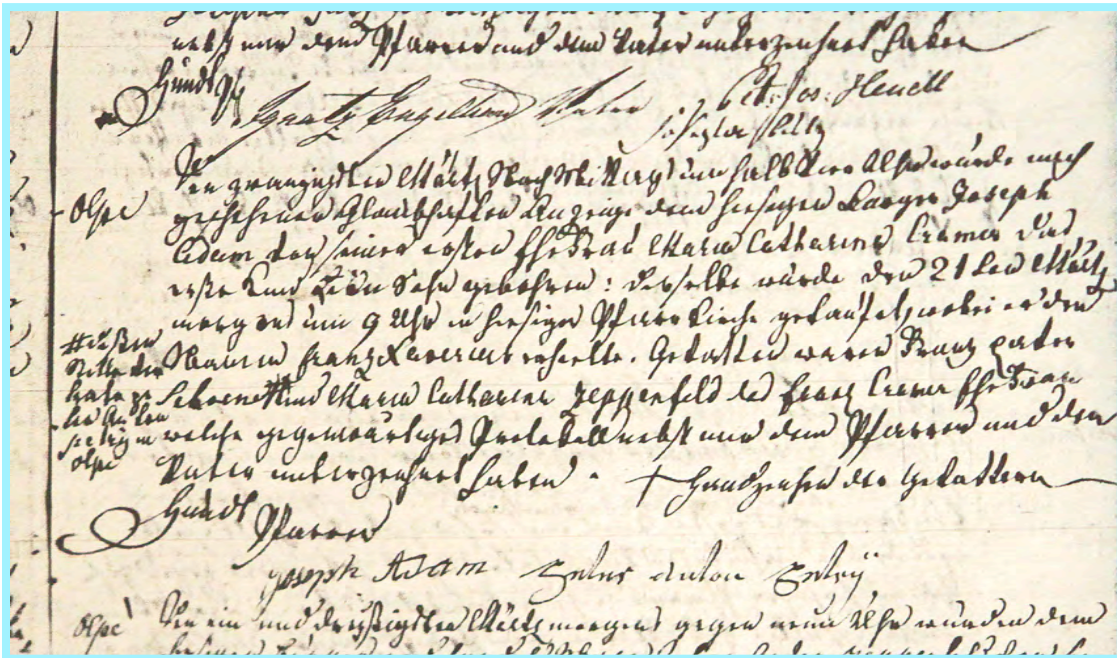 nebst mir dem Pfarrer und dem Vater unterzeichnet haben
Hundt Pfr
Ignatz Engelhard Vater
Pet: Jos: Heuell
Den zwanzigsten Märtz Nach Mittag um halb vier Uhr wurde nach
Olpe
geschehener Glaubhafter Anzeige dem hiesigen Burger Joseph
Adam von seiner ersten Ehefrau Maria Catharina Cramer das
erste Kind Ein Sohn gebohren: derselbe wurde den 21ten Märtz
morgens um 9 Uhr in hiesiger Pfarrkirche getauft, wobei er den
Namen Franz Xaverius erhielte. Gevatter waren Franz Peter
# dessen
Stelle ver
trate
Peter Anton
Selbij in
Olpe
Schoene # und Maria Catharina Zeppenfeld des Franz Cramer Ehefrau
welche gegenwärtiges Protokoll nebst mir dem Pfarrer und dem
Vater unterzeichnet haben.
+ Handzeichen der Gevatterin
Hundt
Pfarrer
Joseph Adam
Peter Anton
Olpe
Den ein und dreißigsten Märtz morgens gegen neun Uhr wurden dem